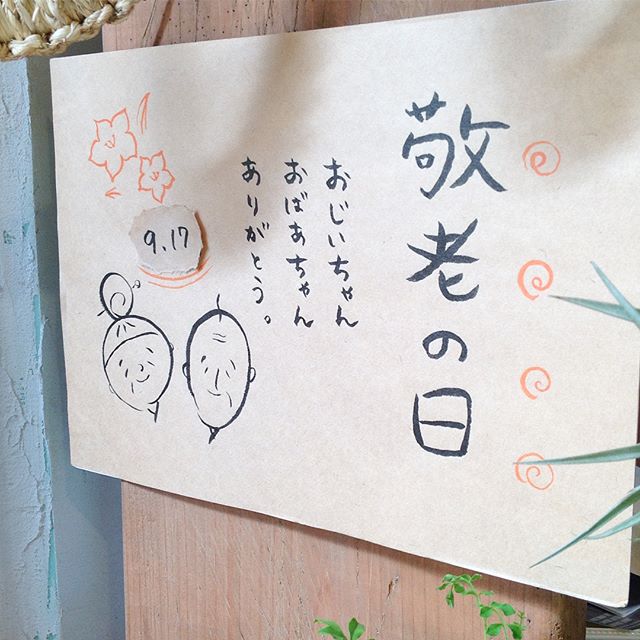 敬老の日
おじいちゃん
おばあちゃん
ありがとう。
9.17